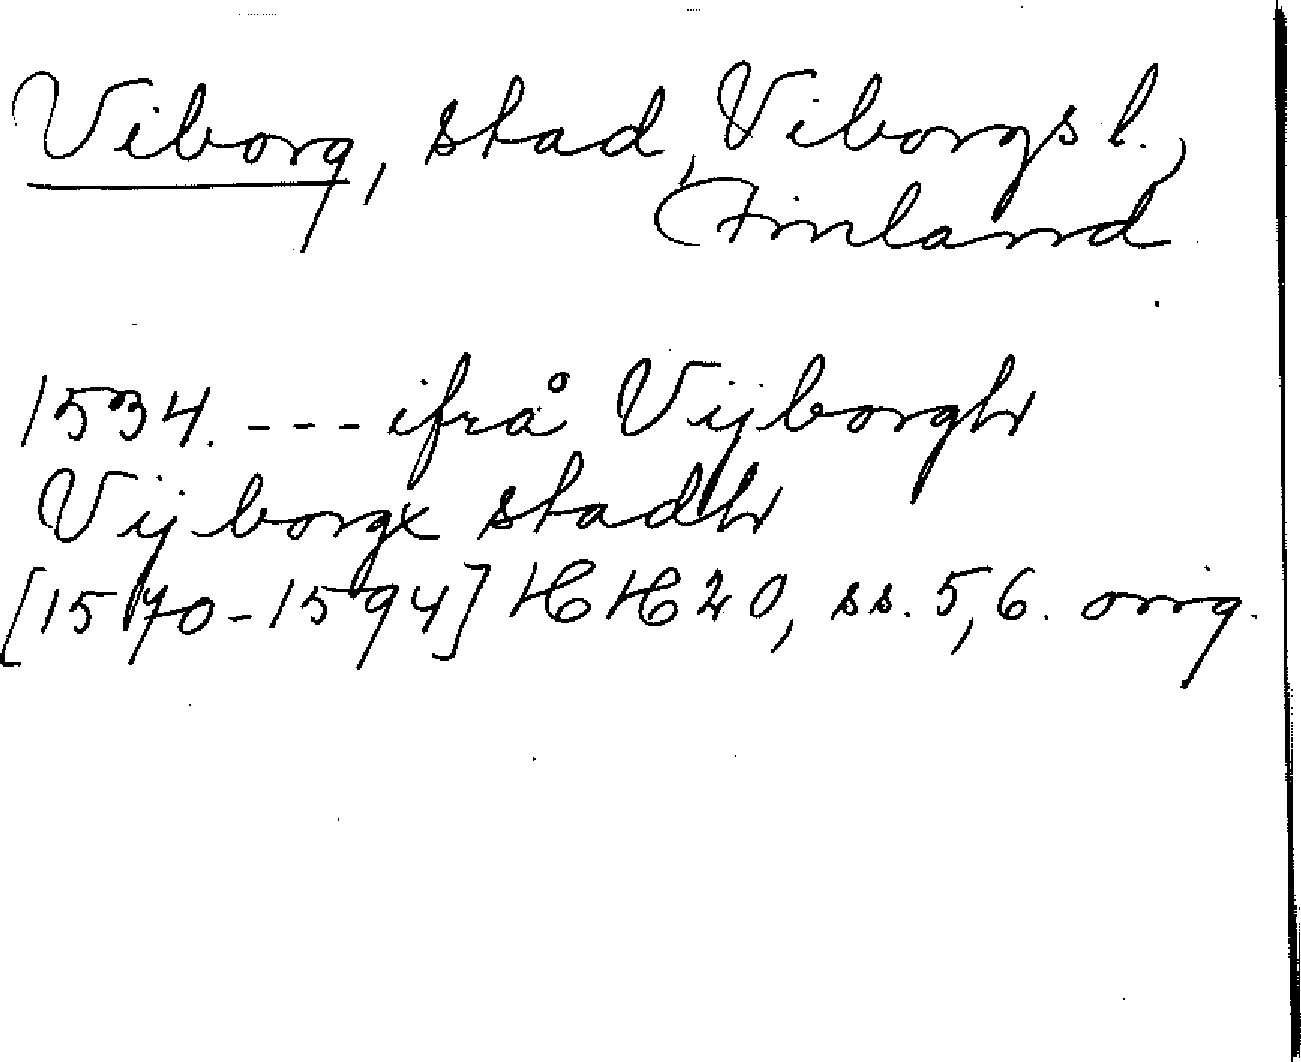 Viborg, stad, Viborgs l.,
Finland
1534. --- ifrå Vijborgh
Vijborgx stadh
[1570-1594] HH 20, ss. 5, 6. orig.